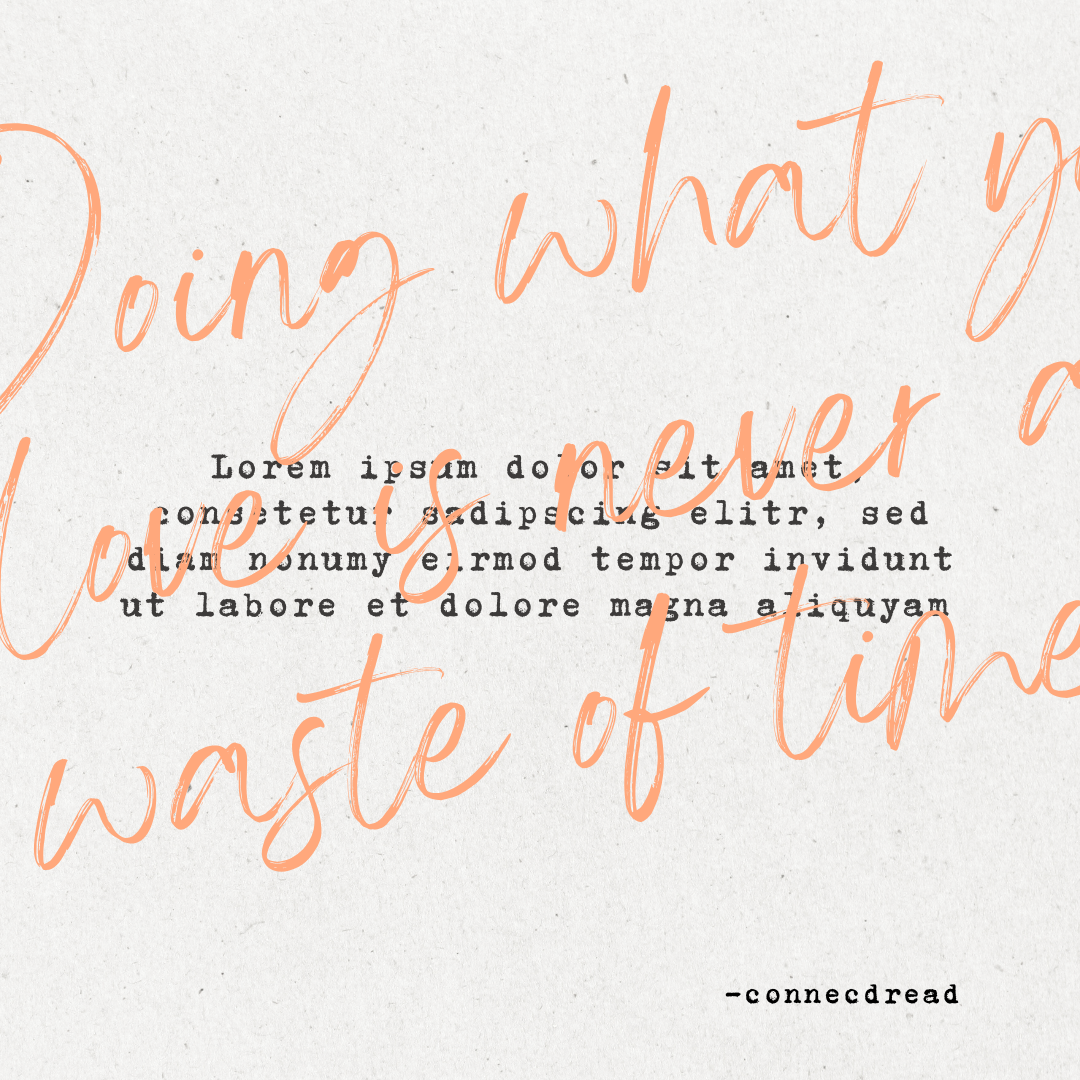 Doing what yo
love is never a
waste of time
Lorem ipsum dolor sit amet,
consetetur sadipscing elitr, sed
diam nonumy eirmod tempor invidunt
ut labore et dolore magna aliquyam
-connecdread